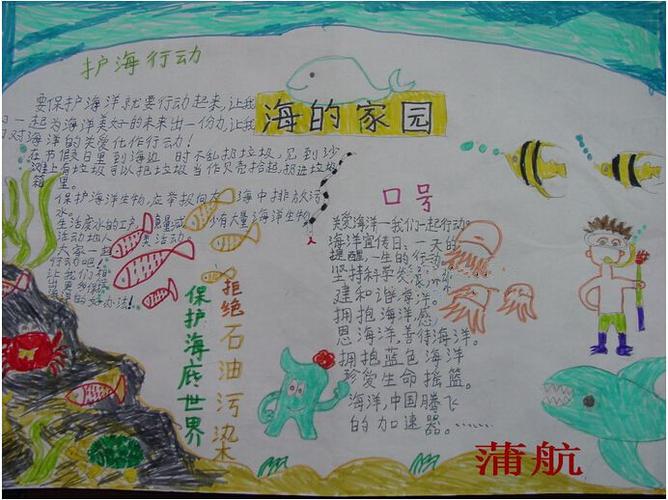 护海行动
要保护海洋就要行动起来,让我
一起为海洋美好的未来出一份力,让我
对海洋的关爱化作行动!
在节假日里到海边 时不乱扔垃圾,见到沙
滩上有垃圾可以把垃圾当作贝壳拾起,扔进垃圾
箱里。
保护海洋生物,应举报向大海中排放污
水。
生活废水的工厂,
少有大量海洋生物
活动地人 类活动。
大家一起
行动吧!
让我们
海的家园
口号
关爱海洋—我们一起行动。
海洋宣传日,一天的
提醒,一生的行动。
坚持科学发
建和谐海洋。
拥抱海洋,感
恩海洋,善待海洋。
拥抱蓝色海洋
珍爱生命摇篮。
海洋,中国腾飞
的加速器。……
拒绝石油污染
保护海底世界
蒲航